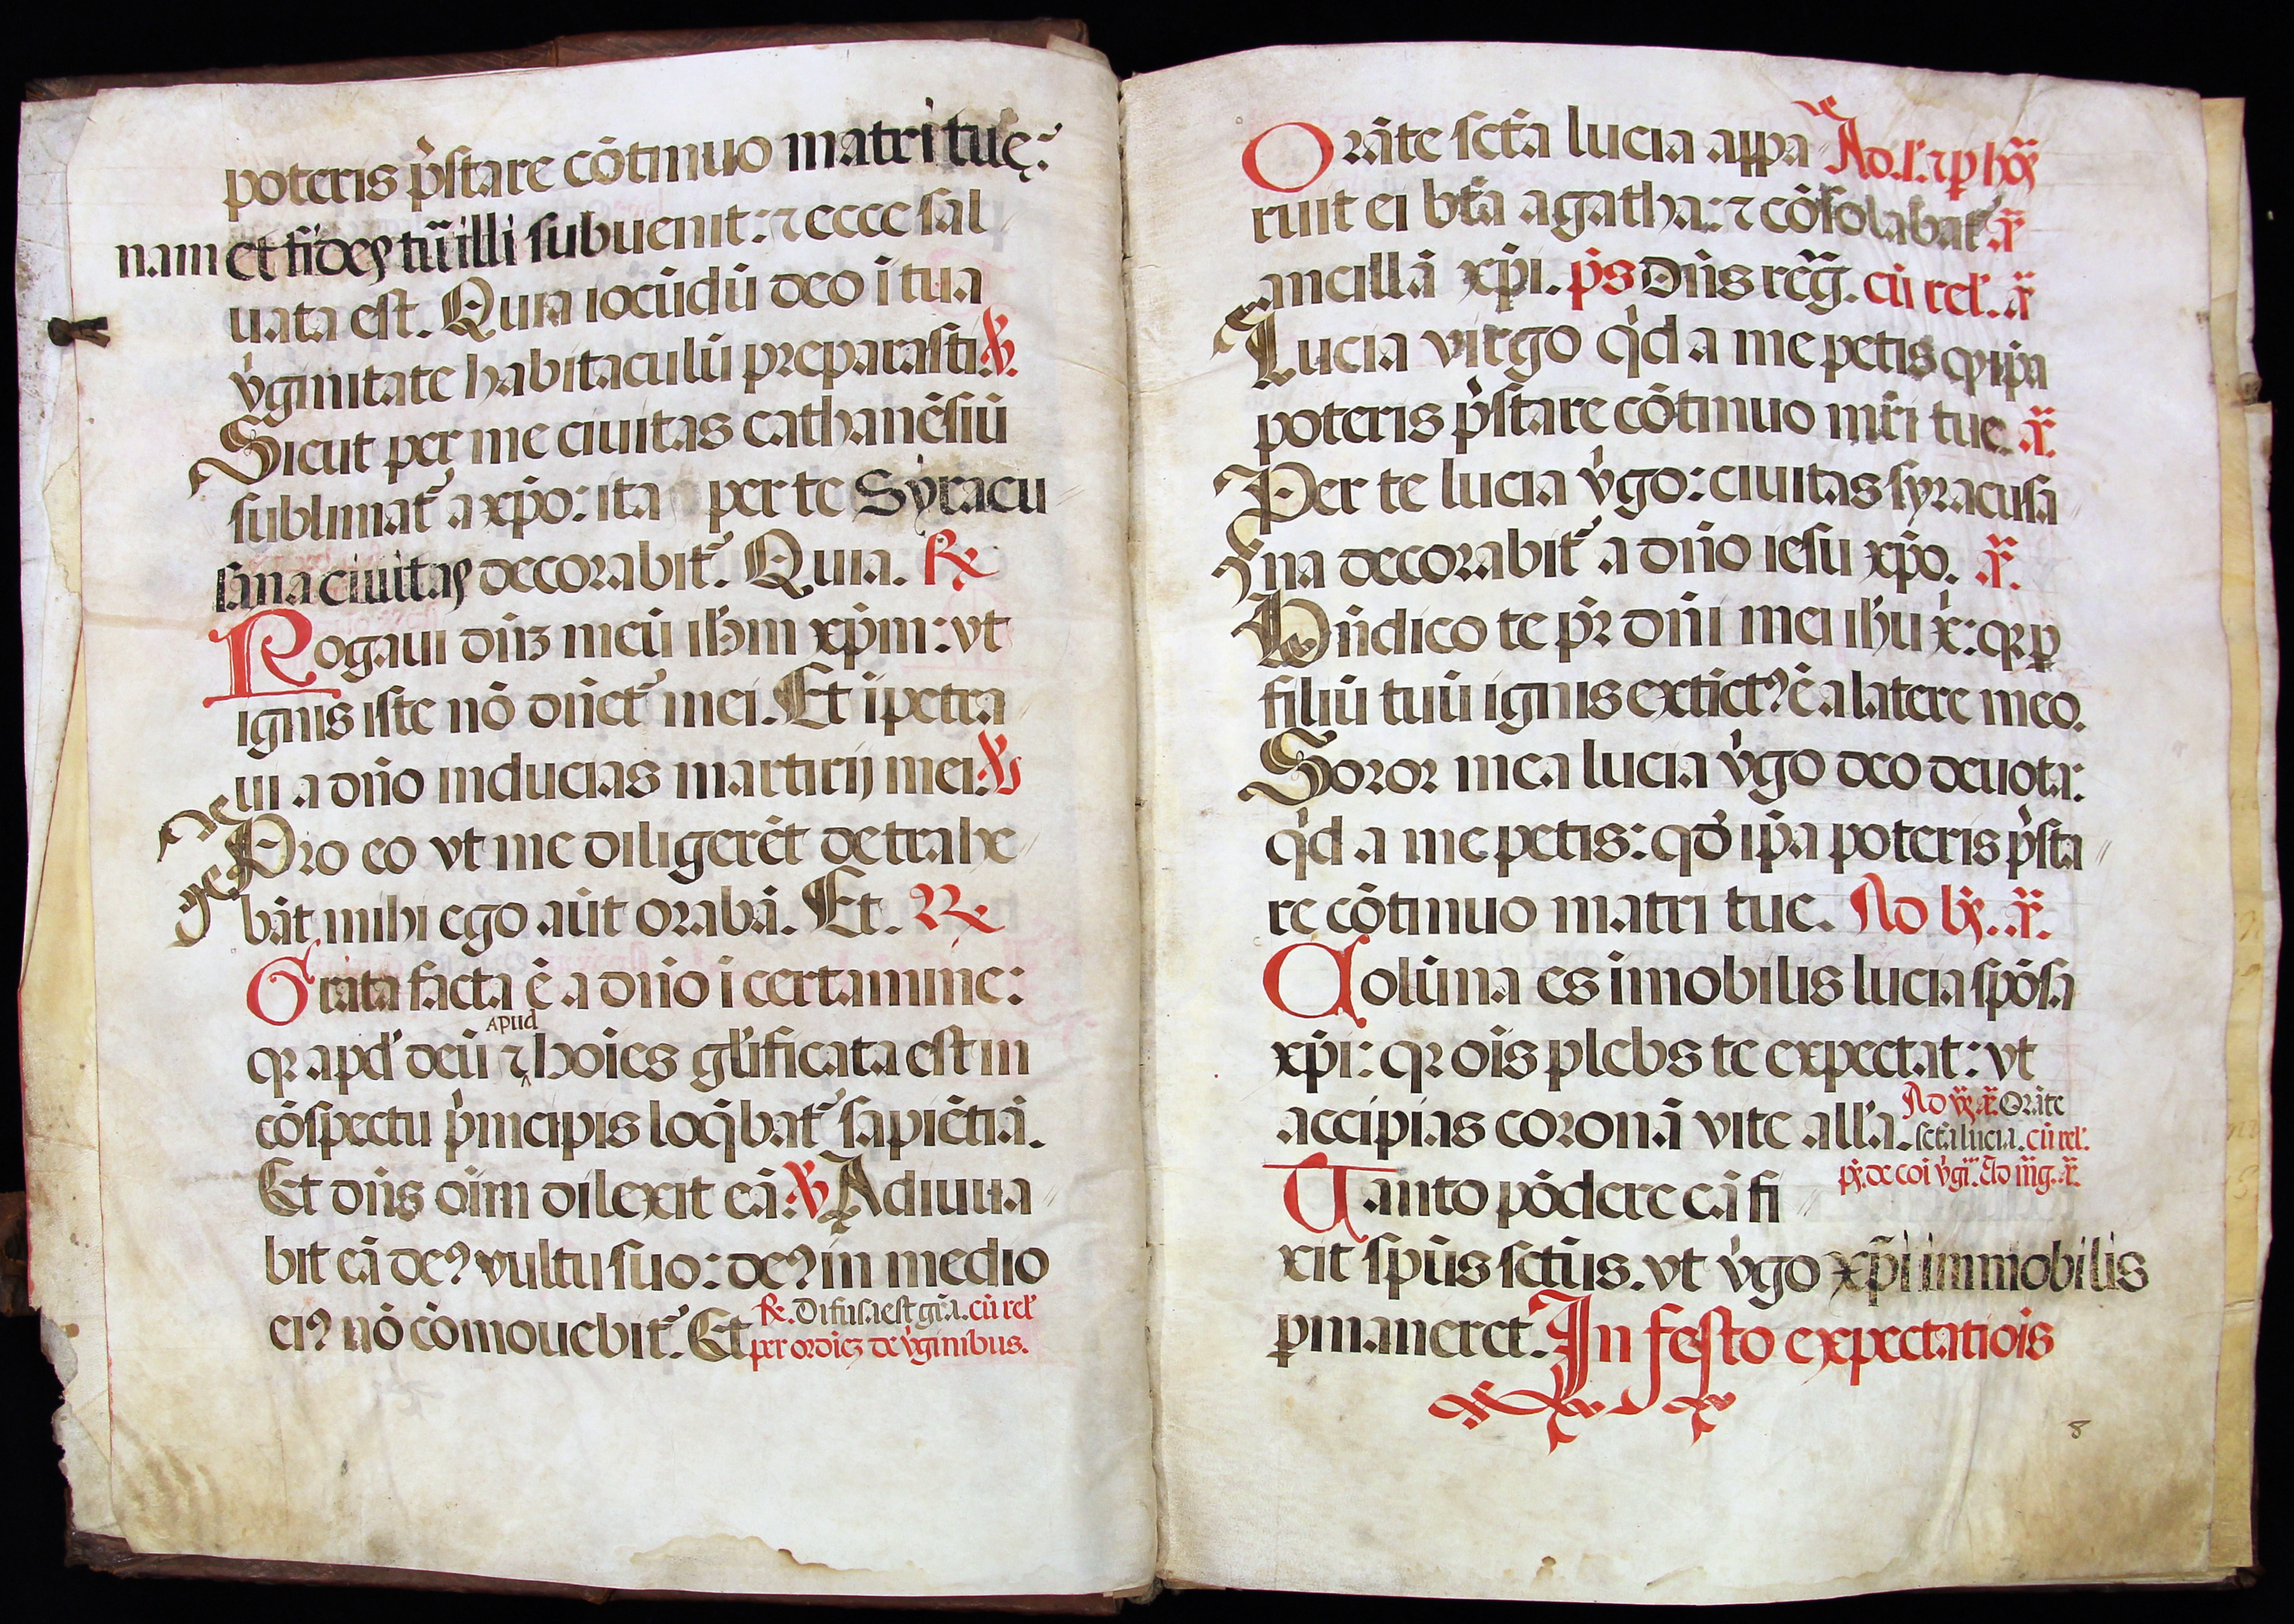 poteris p̃stare cõtinuo matri tuę:
nam et fides tũ illi subuenit: ⁊ ecce sal
uata est. Quia iocũdũ deo ĩ tua
v̓ginitate habitaculũ preparasti. ℣.
Sicut per me ciuitas cathanẽsiũ
sublimat᷑ a xp̃o: ita per te Syracu
sana ciuitas decorabit᷑. Quia. ℞
Rogaui dñʒ meũ ih̃m xp̃m: vt
ignis iste nõ dñet᷑ mei. Et ĩpetra
ui a dño inducias martirij mei. ℣
Pro eo vt me diligerẽt detrahe
bãt mihi ego aũt orabã. Et. ℞
Grata facta ẽ a dño ĩ certamine:
apud
qꝛ apd̓ deũ ⁊ hoĩes gl̓ificata est in
cõspectu p̓ncipis loq̃bat᷑ sapiẽtiã.
Et dñs oĩm dilexit eã: ℣ Adiuua
bit eã deꝰ vultu suo: deꝰ in medio
eiꝰ nõ cõmouebit᷑. Et ℞. Difusa est gr̃a. cũ rel̓
per ordiẽʒ de v̓ginibus.
Orãte sct̃a lucia appa Ad .ł. ⁊ ꝑ hõꝝ
ruit ei bt̃a agatha: ⁊ cõsolabat᷑ ã
ancillã xp̃i. p̃s Dñs reg̃. cũ rel̓. ã
Lucia virgo q̓d a me petis qꝫ ip̃a
poteris p̃stare cõtinuo mr̃i tue. ã.
Per te lucia v̓go: ciuitas syracusa
na decorabit᷑ a dño iesu xp̃o. ã.
Bñdico te pr̃ dñi mei ih̃u x̃: qꝛ ꝑ
filiũ tuũ ignis extĩctꝰ ẽ a latere meo.
Soror mea lucia v̓go deo deuota:
q̓d a me petis: qd̓ ip̃a poteris p̃sta
re cõtinuo matri tue. Ad bꝫ. ã.
Colũna es ĩmobilis lucia spõsa
xp̃i: qꝛ oĩs plebs te expectat: vt
accipias coronã vite all̓a. Ad ṽꝫ. ã. Orãte
sct̃a lucia. cũ rel̓.
pꝫ. de coĩ v̓gĩ. Ad m̃g. ã.
Tanto põdere eã fi
xit spũs sct̃us. vt v̓go xp̃i immobilis
ꝑmaneret. In festo expectatiõis
8